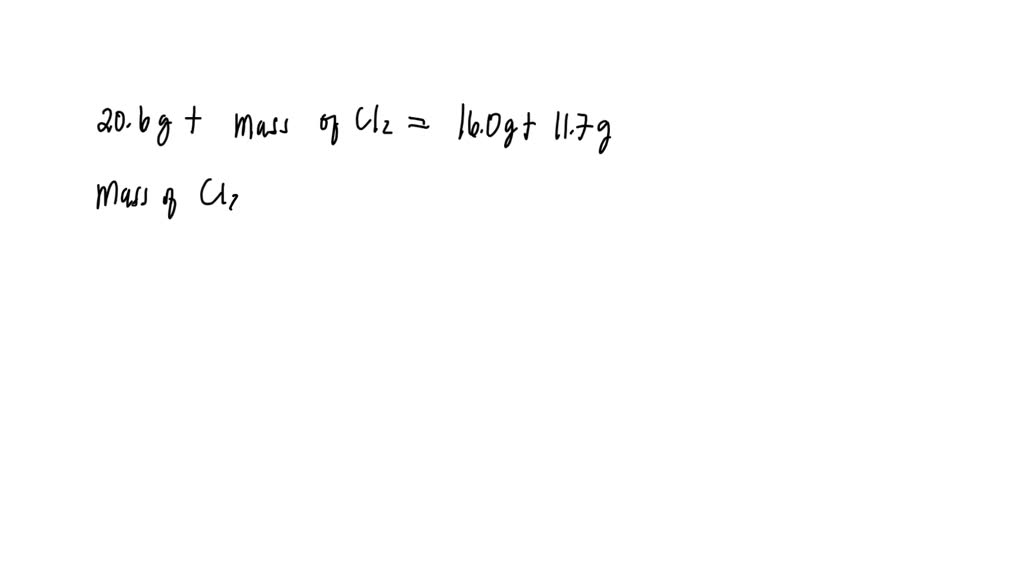 20.6g + mass of Cl2 = 16.0g + 11.7g
mass of Cl2